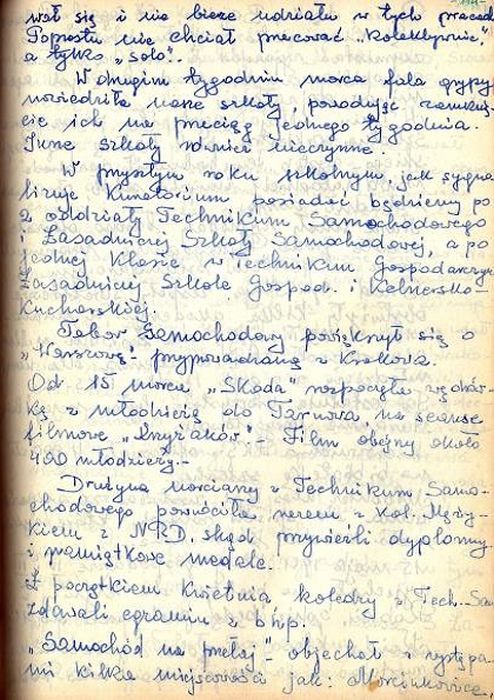 wał się i nie bierze udziału w tych pracach
Poprostu nie chciał pracować „kolektywnie”,
a tylko „solo”.
W drugim tygodniu marca fala grypy
nawiedziła nasze szkoły, powodując zamknię-
cie ich na przeciąg jednego tygodnia.
Inne szkoły również nieczynne.
W przyszłym roku szkolnym, jak sygna-
lizuje Kuratorium posiadać będziemy po
2 oddziały Technikum Samochodowego
i Zasadniczej Szkoły Samochodowej, a po
jednej klasie w Technikum Gospodarczym
Zasadniczej Szkole Gospod. i Kelnersko-
Kucharskiej.
Tabor Samochodowy powiększył się o
„Warszawę” - przyprowadzoną z Krakowa.
Od 15 marca „Skoda” rozpoczęła wędrów-
kę z młodzieżą do Tarnowa na seanse
filmowe „Krzyżaków”. - Film obejrzy około
400 młodzieży. -
Drużyna narciarzy z Technikum Samo-
chodowego powróciła razem z kol.
z NRD, skąd przywieźli dyplomy
i pamiątkowe medale.
Z początkiem kwietnia koledzy z Tech. Sam
zdawali egzamin z bhp.
„Samochód na przełaj” - objechał z występa-
mi kilka miejscowości jak: Marcinkowice,